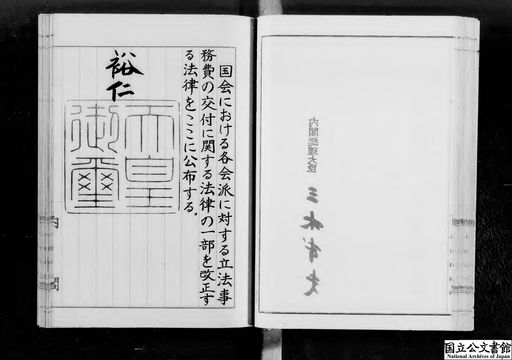 国会における各会派に対する立法事
務費の交付に関する法律の一部を改正す
る法律をここに公布する。
裕仁
天皇
御璽
内閣
内閣総理大臣
三木武夫
国立公文書館
National Archives of Japan